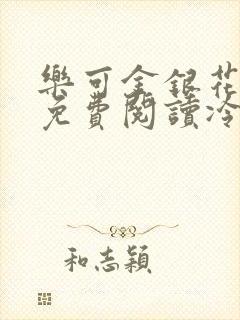 樂可金銀花
免費閱讀冷
和志穎